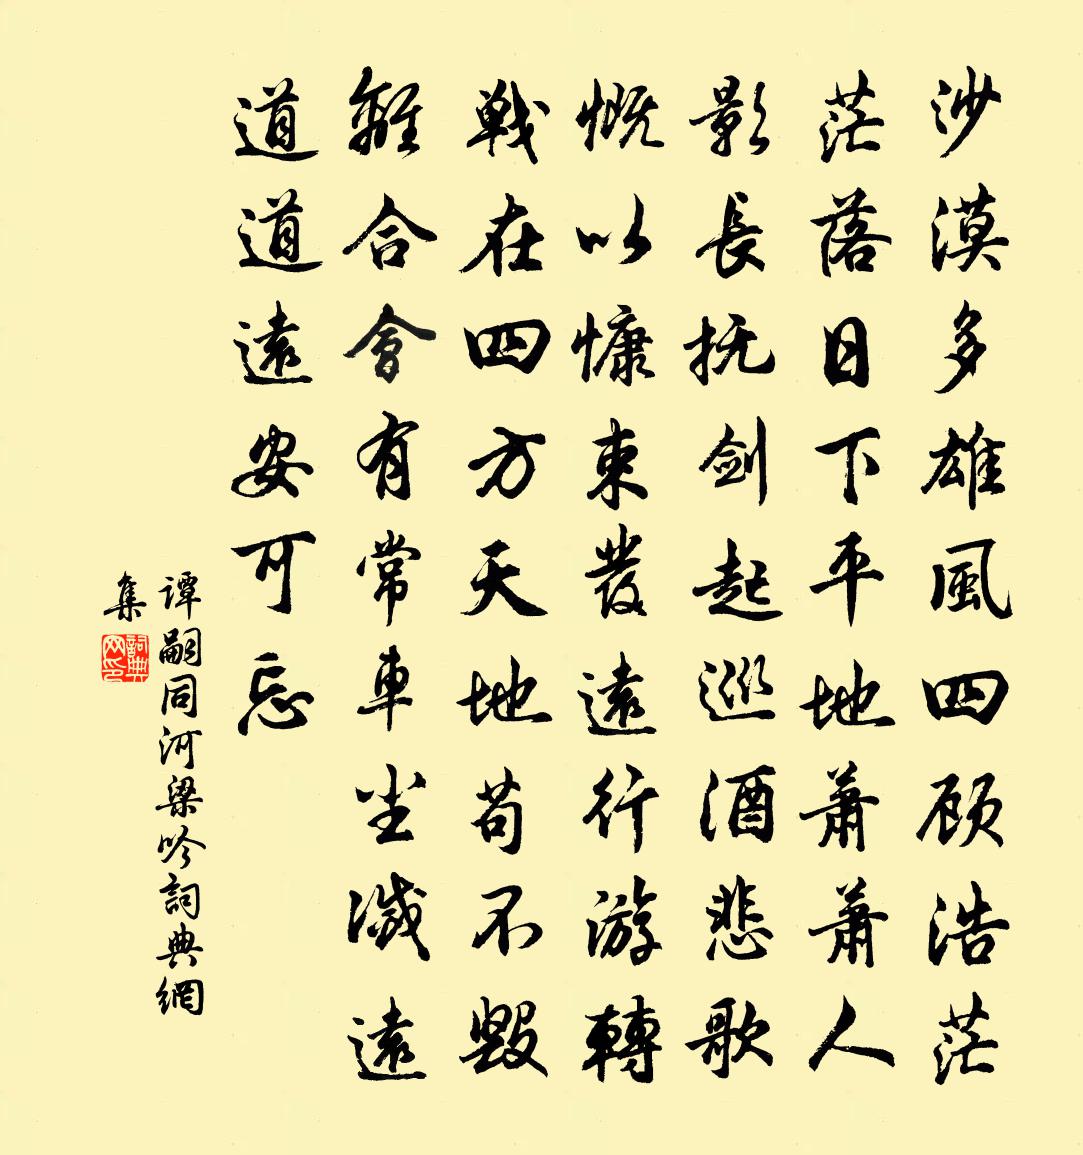 沙漠多雄風四顾浩茫
茫落日下平地萧萧人
影長抚剑起巡酒悲歌
慨以慷束發遠行游轉
戰在四方天地苟不毀
離合會有常車尘滅遠
道道遠安可忘
谭嗣同河梁吟詞典網
集
詞典网印